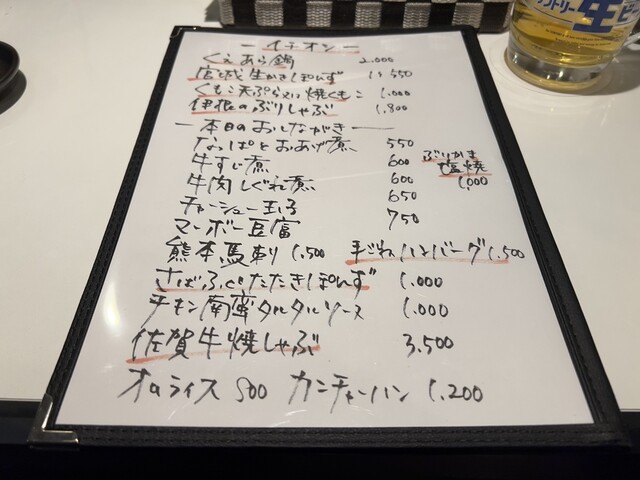 サントリー 生ビール
ー イチオシ ー
くえあら鍋 2.000
宮城生かきぽんず
くもこ天ぷら又は焼くもこ 1.000
伊根のぶりしゃぶ 1.800
ー本日のおしながきー
なっぱとおあげ煮 550
牛すじ煮 600
ぶりかま塩焼 1.000
牛肉しぐれ煮 600
チャーシュー玉子 650
マーボー豆富 750
熊本馬刺 1.500 手ごねハンバーグ 1.500
さばふぐたたきぽんず 1.000
チキン南蛮タルタルソース 1.000
佐賀牛焼しゃぶ 3.500
オムライス 800 カニチャーハン 1.200